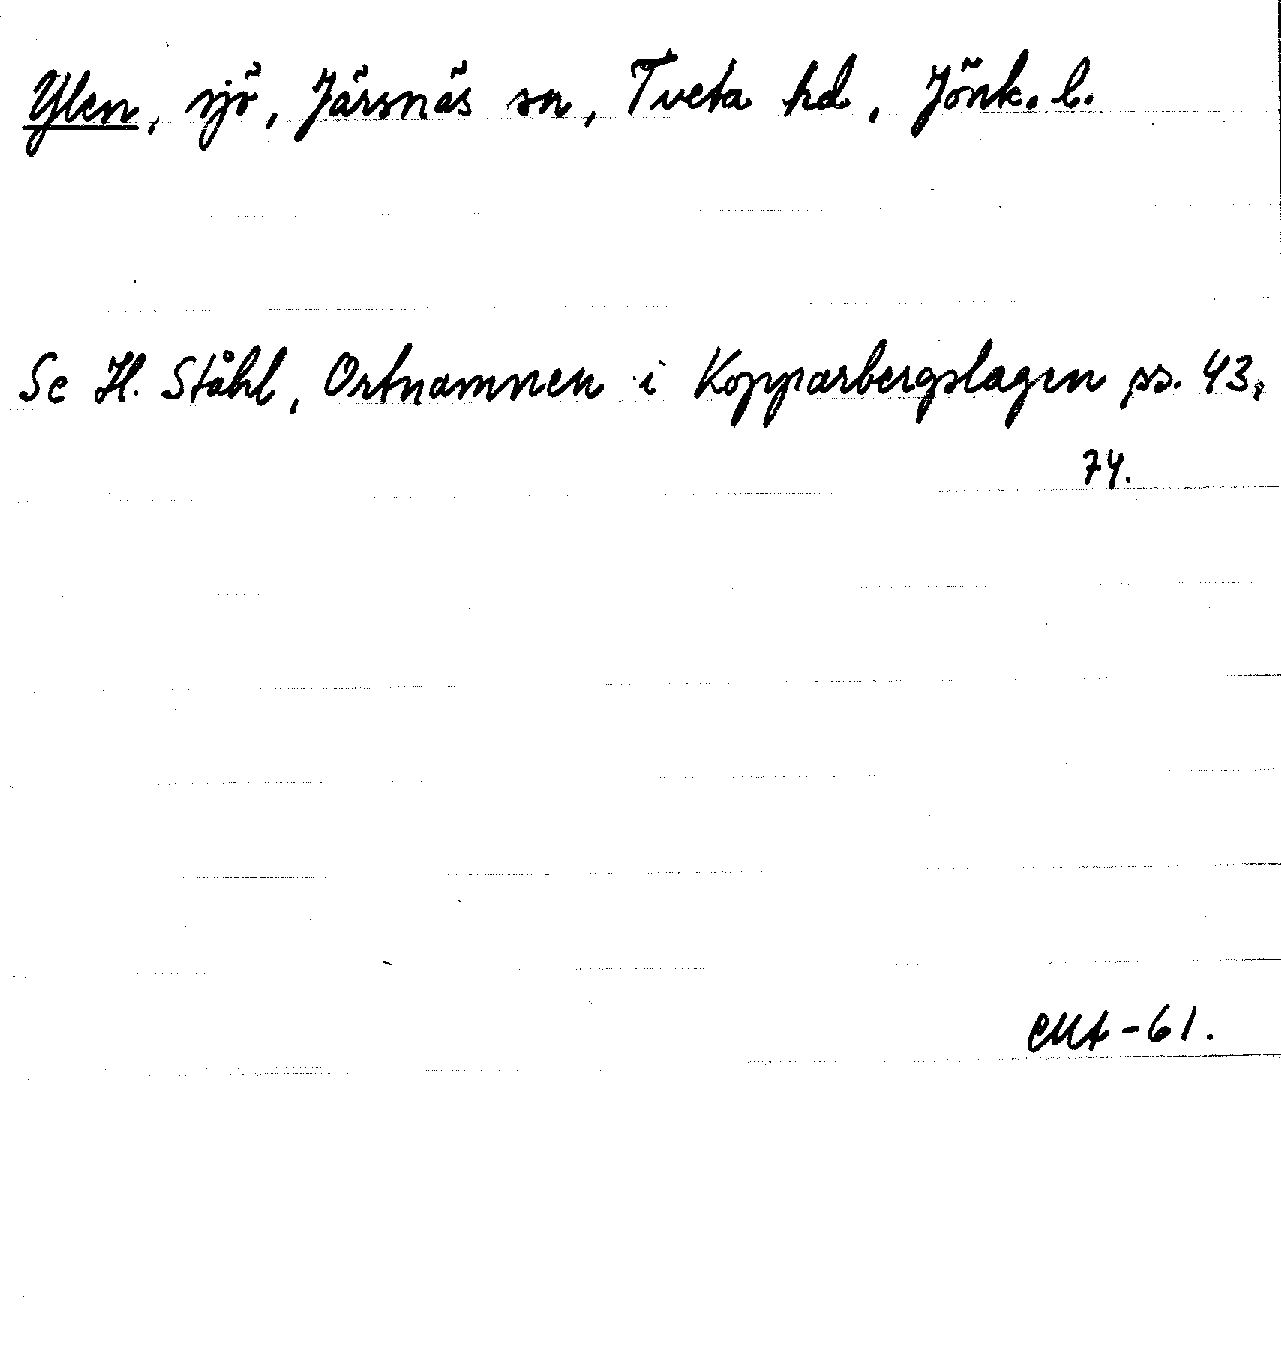 Ylen, sjö, Järsnäs sn, Tveta hd, Jönk. l.
Se H. Ståhl, Ortnamnen i Kopparbergslagen ss. 43,
74.
CMA-61.